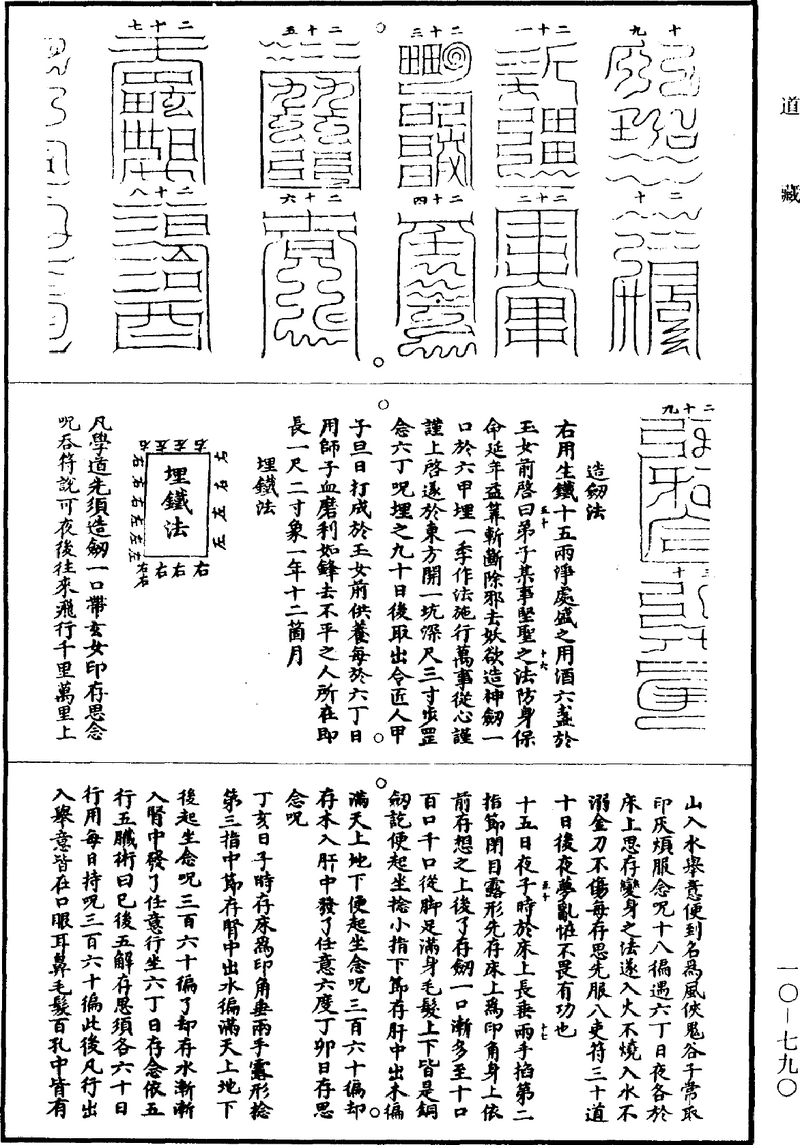 道藏
十九
二十
二十一
二十二
二十三
二十四
二十五
二十六
二十七
二十八
二十九
三十
造劒法
右用生鐵十五兩淨處盛之用酒六盞於
玉女前啓曰弟子某事堅聖之法防身保
命延年益筭斬斷除邪去妖欲造神劒一
口於六甲埋一季作法施行萬事從心謹
謹上啓遂於東方開一坑深尺三寸步罡
念六丁呪埋之九十日後取出令匠人甲
子旦日打成於玉女前供養每於六丁日
用師子血磨利如鋒去不平之人所在即
長一尺二寸象一年十二箇月
埋鐵法
埋鐵法
凡學道先須造劒一口帶玄女印存思念
呪吞符說可夜後往來飛行千里萬里上
山入水舉意便到名爲風俠鬼谷子常取
印灰煩服念呪十八徧遇六丁日夜各於
床上思存變身之法遂入火不燒入水不
溺金刀不傷每存思先服八吏符三十道
十日後夜夢亂恠不畏有功也
十五日夜子時於床上長垂兩手掐第二
指節閉目露形先存床上爲印角身上依
前存想之上後了存劒一口漸多至十口
百口千口從脚足滿身毛髮上下皆是銅
劒說便起坐捻小指下節存肝中出木徧
滿天上地下便起坐念呪三百六十徧却
存木入肝中發了任意六度丁卯日存思
念呪
丁亥日子時存床爲印角垂兩手露形捻
第三指中節存腎中出水徧滿天上地下
後起坐念呪三百六十徧了却存水漸漸
入腎中發了任意行坐六丁日存念依五
行五臟術曰已後五解存思須各六十日
行用每日持呪三百六十徧此後凡行出
入舉意皆在口眼耳鼻毛髮百孔中皆有
一〇—七九〇